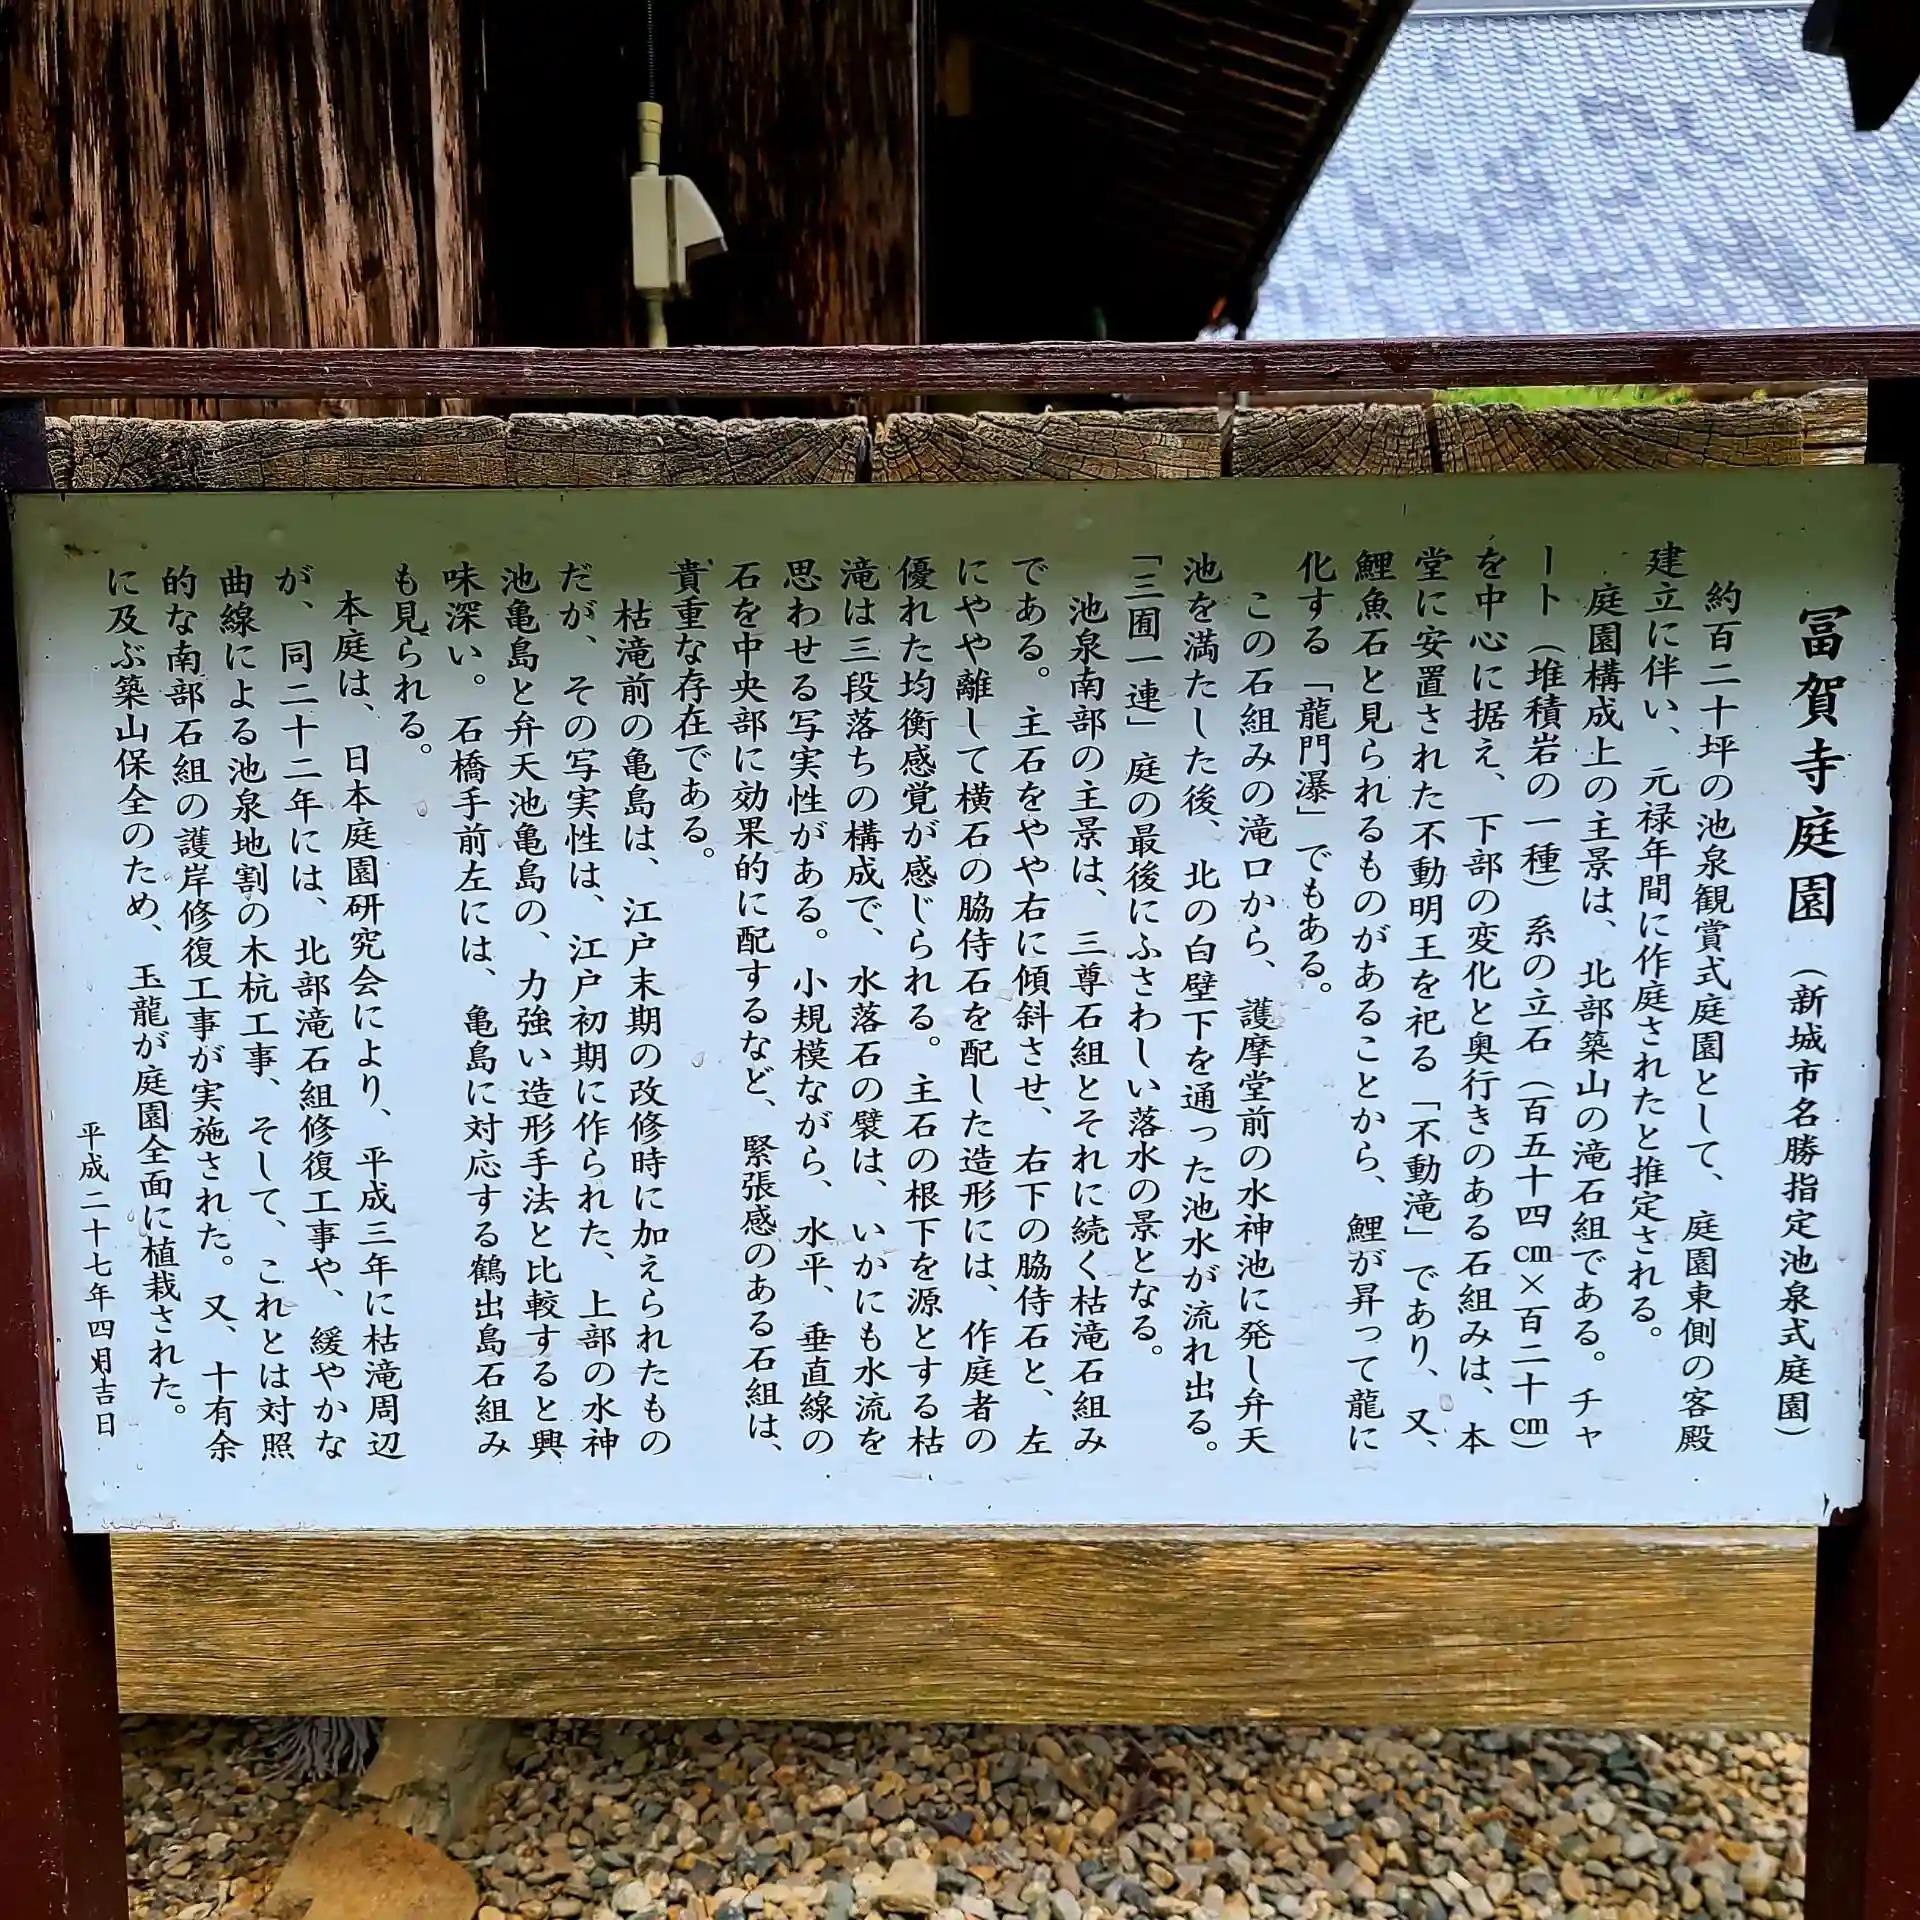 冨賀寺庭園（新城市名勝指定池泉式庭園）
約百二十坪の池泉観賞式庭園として、庭園東側の客殿
建立に伴い、元禄年間に作庭されたと推定される。
庭園構成上の主景は、北部築山の滝石組である。チャ
ート（堆積岩の一種）系の立石（百五十四㎝×百二十㎝）
を中心に据え、下部の変化と奥行きのある石組みは、本
堂に安置された不動明王を祀る「不動滝」であり、又、
鯉魚石と見られるものがあることから、鯉が昇って龍に
化する「龍門瀑」でもある。
この石組みの滝口から、護摩堂前の水神池に発し弁天
池を満たした後、北の白壁下を通った池水が流れ出る。
「三囲一連」庭の最後にふさわしい落水の景となる。
池泉南部の主景は、三尊石組とそれに続く枯滝石組み
である。主石をやや右に傾斜させ、右下の脇侍石と、左
にやや離して横石の脇侍石を配した造形には、作庭者の
優れた均衡感覚が感じられる。主石の根下を源とする枯
滝は三段落ちの構成で、水落石の襞は、いかにも水流を
思わせる写実性がある。小規模ながら、水平、垂直線の
石を中央部に効果的に配するなど、緊張感のある石組は、
貴重な存在である。
枯滝前の亀島は、江戸末期の改修時に加えられたもの
だが、その写実性は、江戸初期に作られた、上部の水神
池亀島と弁天池亀島の、力強い造形手法と比較すると興
味深い。石橋手前左には、亀島に対応する鶴出島石組み
も見られる。
本庭は、日本庭園研究会により、平成三年に枯滝周辺
が、同二十二年には、北部滝石組修復工事や、緩やかな
曲線による池泉地割の木杭工事、そして、これとは対照
的な南部石組の護岸修復工事が実施された。又、十有余
に及ぶ築山保全のため、玉龍が庭園全面に植栽された。
平成二十七年四月吉日